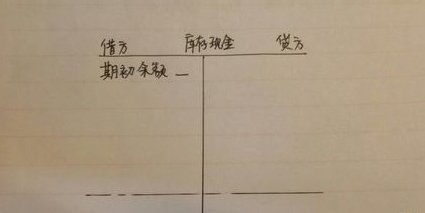 借方 库存现金 贷方
期初余额 —